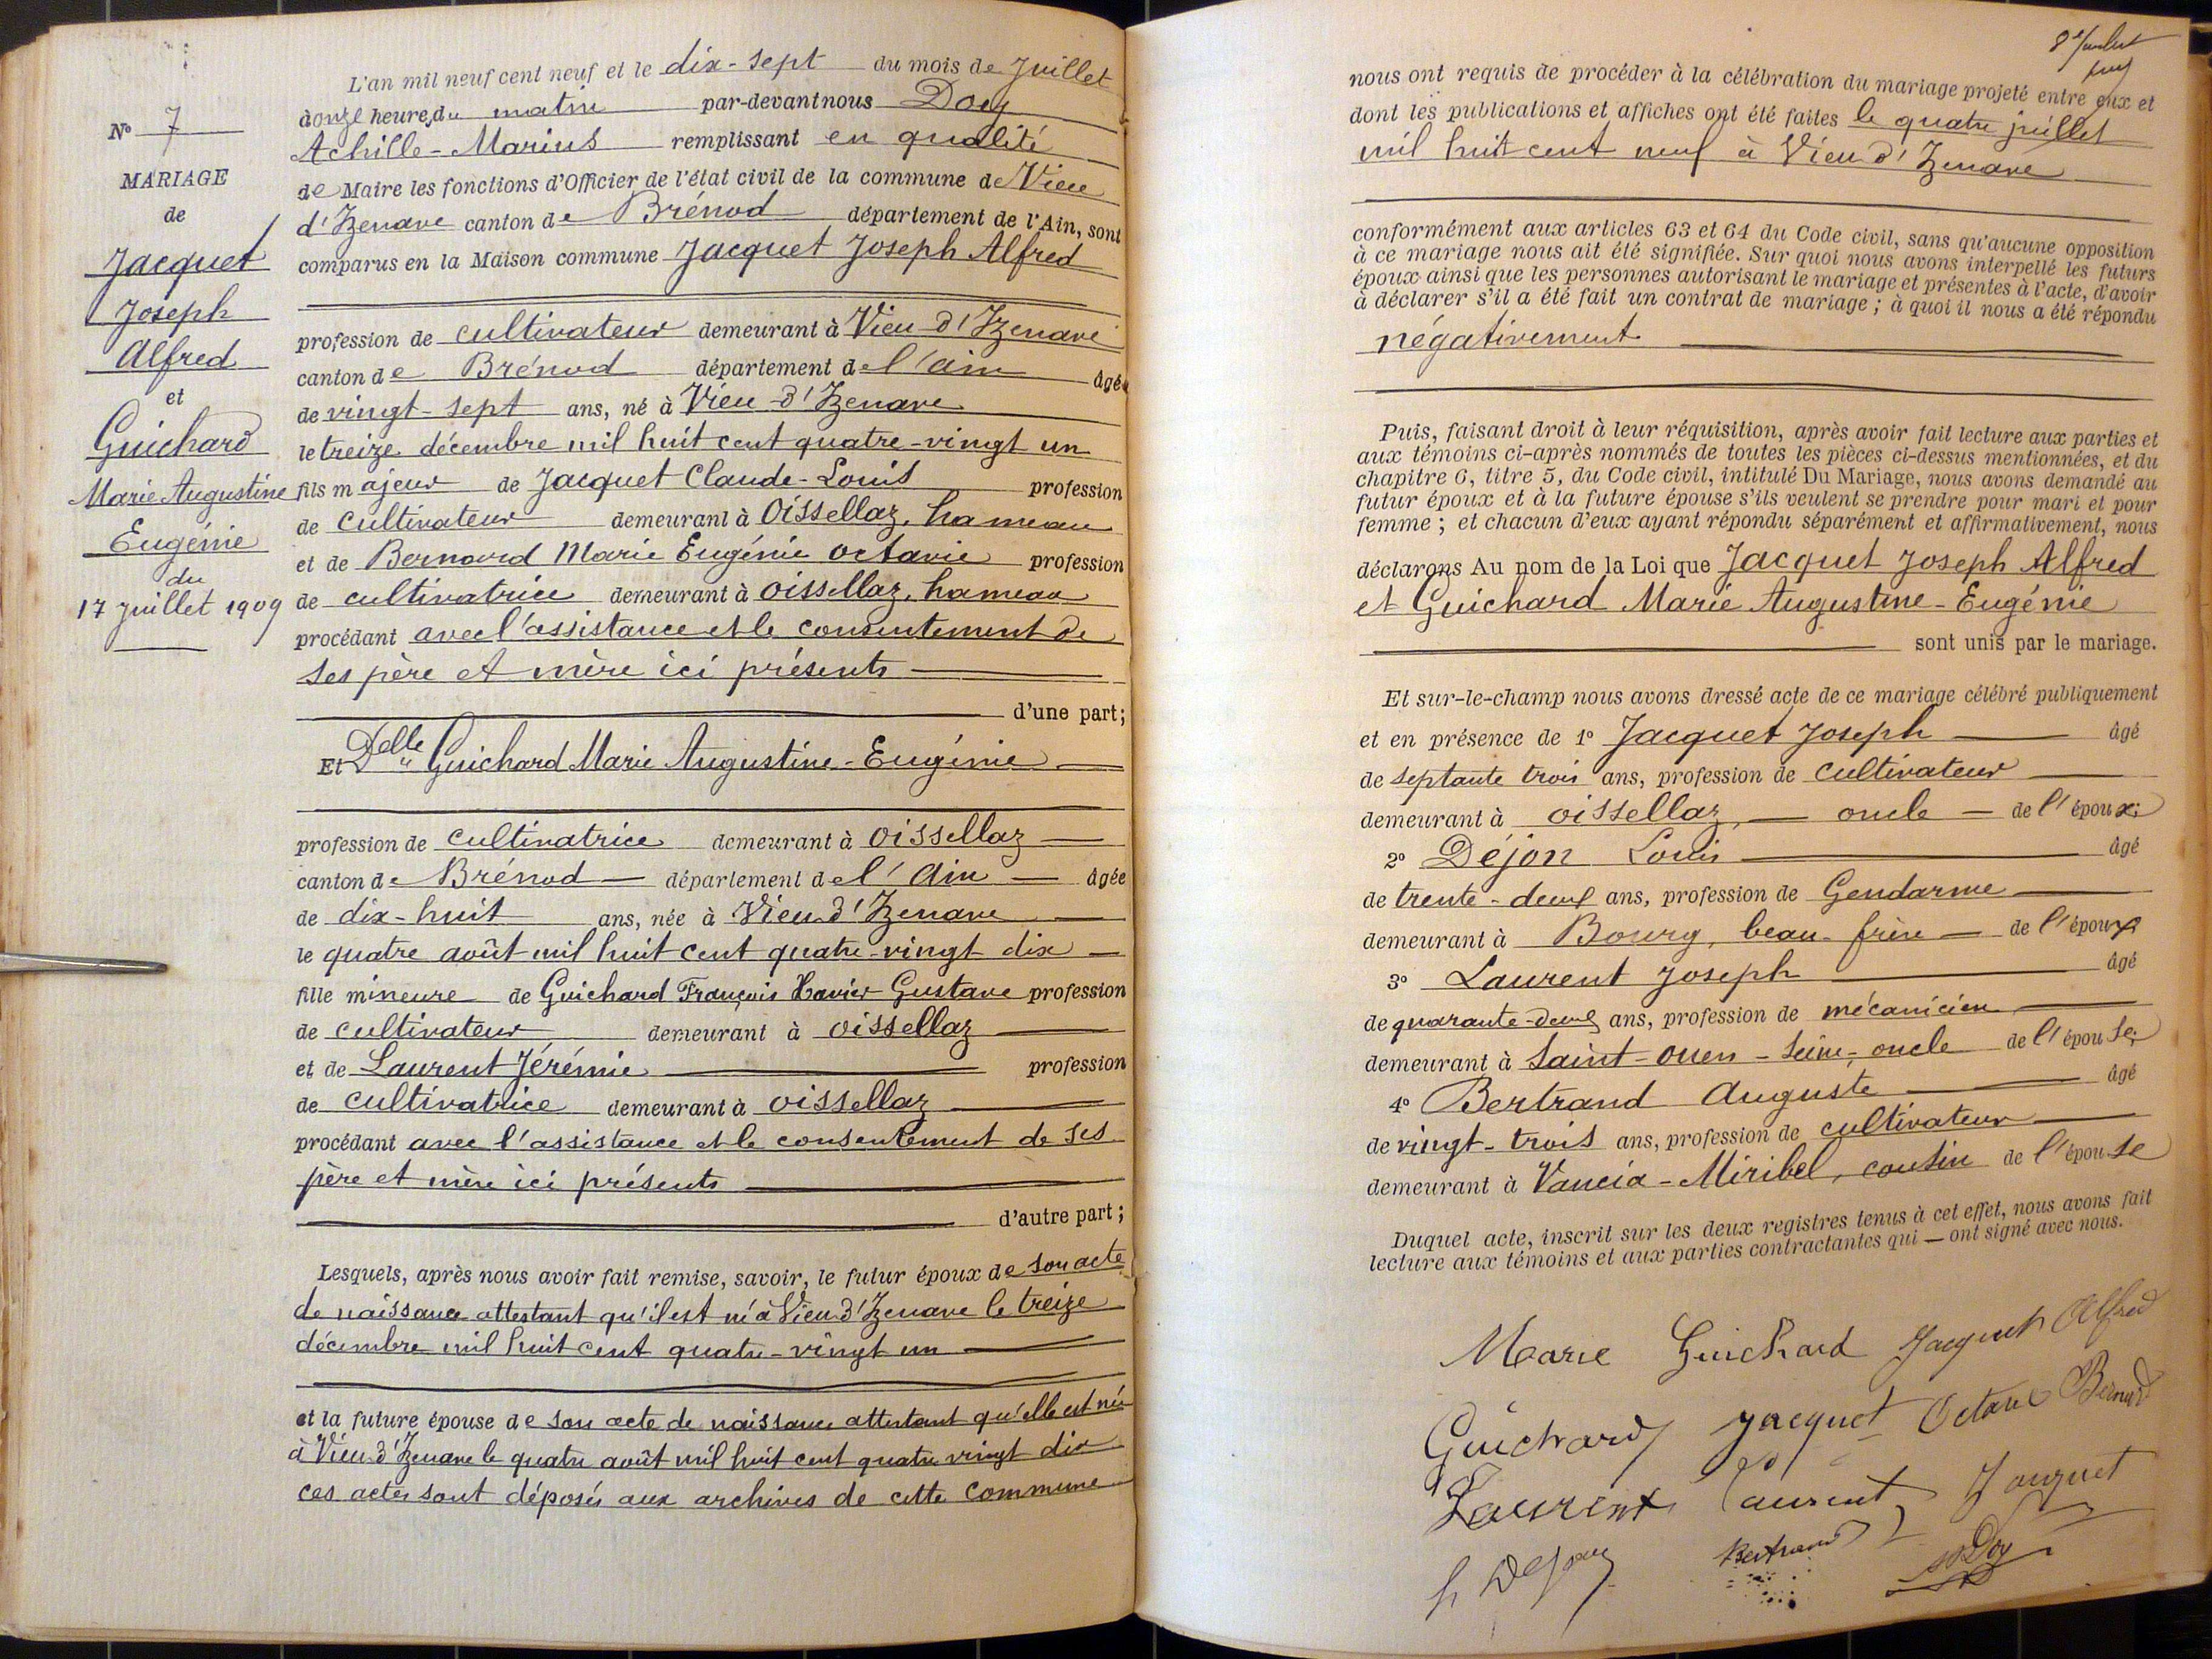 N° 7
MARIAGE
de
Jacquet
Joseph
Alfred
et
Guichard
Marie Augustine
Eugénie
du
17 Juillet 1909
L'an mil neuf cent neuf et le dix-sept du mois de Juillet
à onze heures du matin par-devant nous Doy
Achille-Marius remplissant en qualité
de Maire les fonctions d'Officier de l'état civil de la commune de Vieu
d'Izenave canton de Brénod département de l'Ain, sont
comparus en la Maison commune Jacquet Joseph Alfred
profession de cultivateur demeurant à Vieu-d'Izenave
canton de Brénod département de l'Ain âgé
de vingt-sept ans, né à Vieu-d'Izenave
le treize décembre mil huit cent quatre-vingt un
fils majeur de Jacquet Claude-Louis profession
de cultivateur demeurant à Oissellaz, hameau
et de Bernard Marie Eugénie Octavie profession
de cultivatrice demeurant à Oissellaz, hameau
procédant avec l'assistance et le consentement de
ses père et mère ici présents
d'une part;
Et Delle Guichard Marie Augustine-Eugénie
profession de cultivatrice demeurant à Oissellaz
canton de Brénod département de l'Ain âgée
de dix-huit ans, née à Vieu d'Izenave
le quatre août mil huit cent quatre-vingt dix
fille mineure de Guichard François Xavier Gustave profession
de cultivateur demeurant à Oissellaz
et de Laurent Jérémie profession
de cultivatrice demeurant à Oissellaz
procédant avec l'assistance et le consentement de ses
père et mère ici présents
d'autre part;
Lesquels, après nous avoir fait remise, savoir, le futur époux de son acte
de naissance attestant qu'il est né à Vieu d'Izenave le treize
décembre mil huit cent quatre-vingt un
et la future épouse de son acte de naissance attestant qu'elle est née
à Vieu d'Izenave le quatre août mil huit cent quatre vingt dix
ces actes sont déposés aux archives de cette commune
nous ont requis de procéder à la célébration du mariage projeté entre eux et
dont les publications et affiches ont été faites le quatre juillet
mil huit cent neuf à Vieu d'Izenave
conformément aux articles 63 et 64 du Code civil, sans qu'aucune opposition
à ce mariage nous ait été signifiée. Sur quoi nous avons interpellé les futurs
époux ainsi que les personnes autorisant le mariage et présentes à l'acte, d'avoir
à déclarer s'il a été fait un contrat de mariage; à quoi il nous a été répondu
négativement
Puis, faisant droit à leur réquisition, après avoir fait lecture aux parties et
aux témoins ci-après nommés de toutes les pièces ci-dessus mentionnées, et du
chapitre 6, titre 5, du Code civil, intitulé Du Mariage, nous avons demandé au
futur époux et à la future épouse s'ils veulent se prendre pour mari et pour
femme; et chacun d'eux ayant répondu séparément et affirmativement, nous
déclarons Au nom de la Loi que Jacquet Joseph Alfred
et Guichard Marie Augustine-Eugénie
sont unis par le mariage.
Et sur-le-champ nous avons dressé acte de ce mariage célébré publiquement
et en présence de 1° Jacquet Joseph âgé
de septante trois ans, profession de cultivateur
demeurant à Oissellaz, oncle de l'époux;
2° Déjon Louis âgé
de trente-deux ans, profession de Gendarme
demeurant à Bourg, beau-frère de l'époux
3° Laurent Joseph âgé
de quarante-deux ans, profession de mécanicien
demeurant à Saint-Ouen-Seine, oncle de l'épouse;
4° Bertrand Auguste âgé
de vingt-trois ans, profession de cultivateur
demeurant à Vancia-Miribel, cousin de l'épouse
Duquel acte, inscrit sur les deux registres tenus à cet effet, nous avons fait
lecture aux témoins et aux parties contractantes qui ont signé avec nous.
Marie Guichard Jacquet Alfred
Guichard Jacquet Octavie Bernard
Laurent Laurent Jacquet
Bertrand Doy